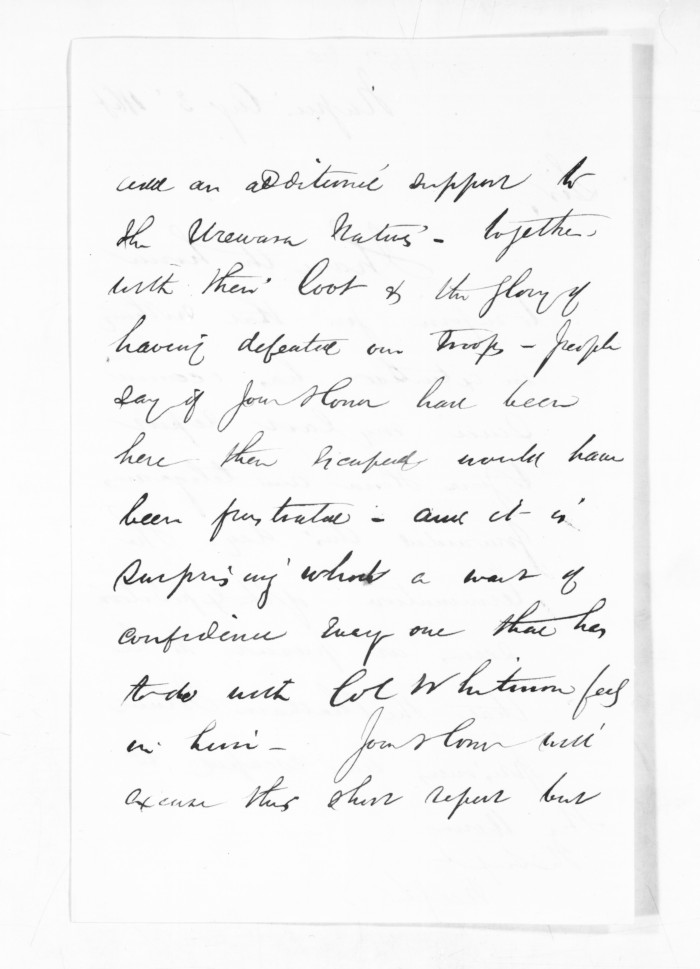 and an additional support to
the Urewara Natives - together
with their loot & the glory of
having defeated our troops - people
say if Your Honor had been
here their escape would have
been frustrated - and it is
surprising what a want of
confidence every one that has
to do with Col Whitmore feels
in him - Your Honor will
excuse this short report but